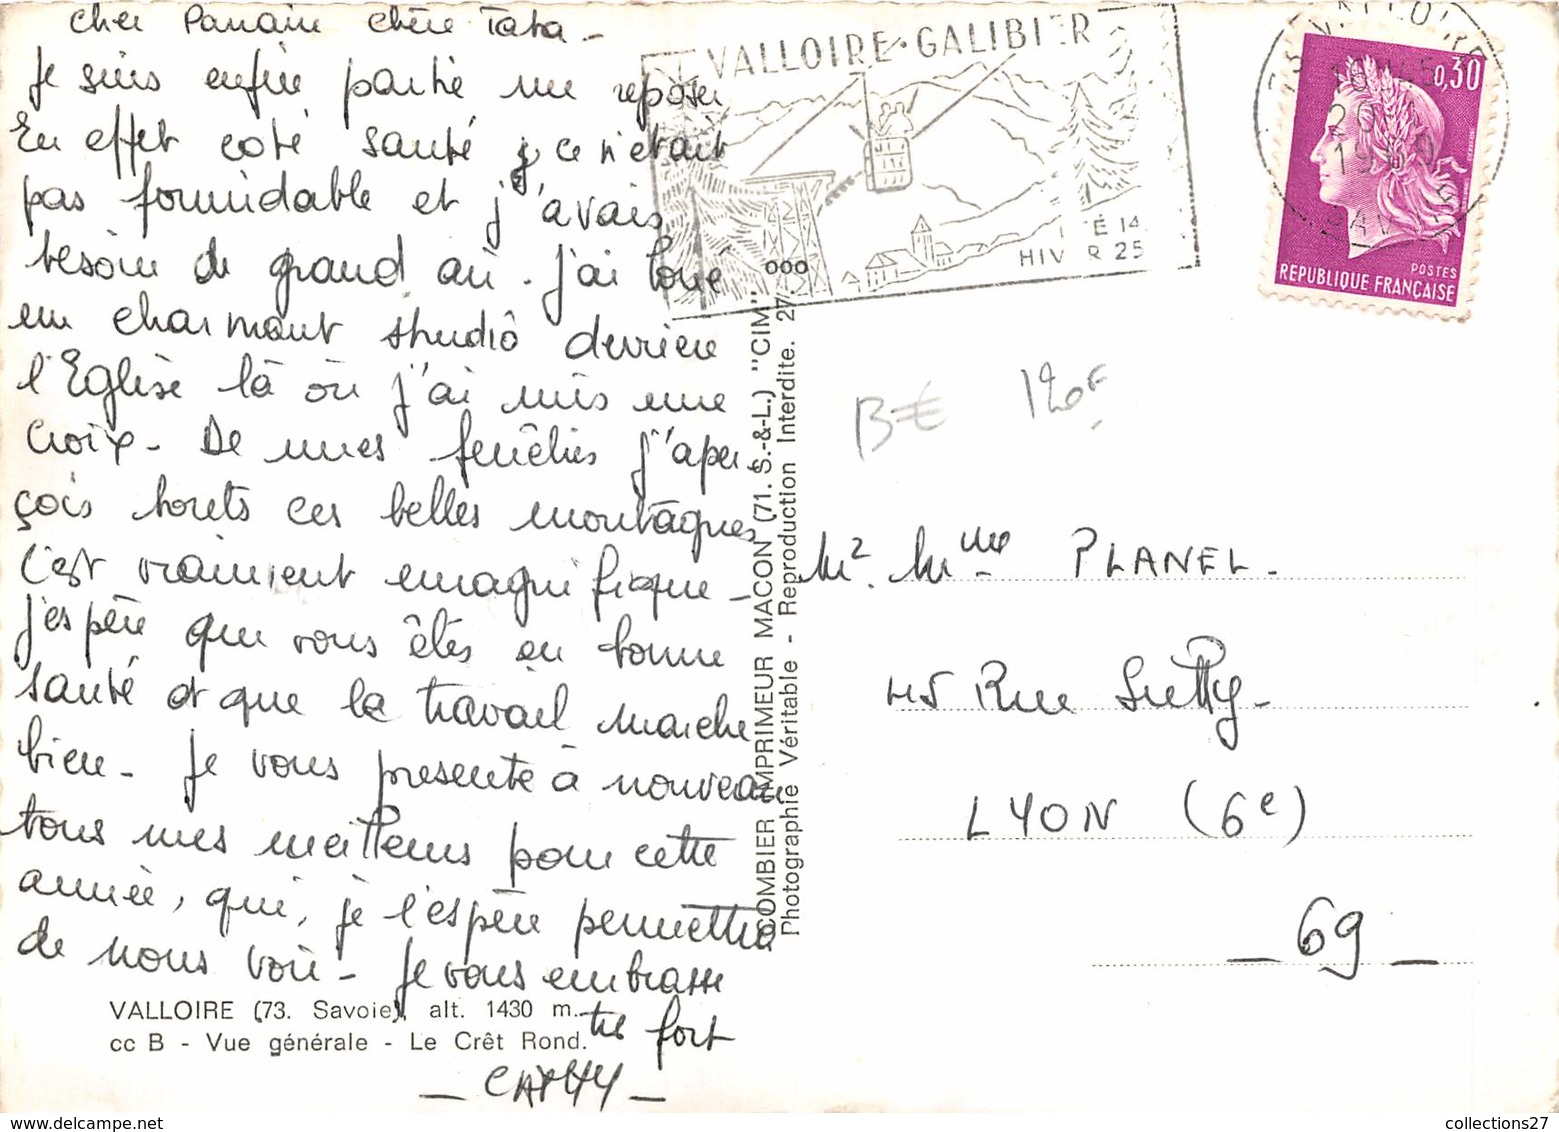 Cher Parrain chère Tata -
Je suis enfin partie me reposer
En effet coté santé ce n'était
pas formidable et j'avais
besoin de grand air. J'ai loué
un charmant studio derrière
l'Eglise là où j'ai mis une
croix - De mes fenêtres j'aper
çois toutes ces belles montagnes
C'est vraiment magnifique -
j'espère que vous êtes en bonne
santé et que le travail marche
bien - Je vous présente à nouveau
tous mes meilleurs pour cette
année, qui, je l'espère permettra
de nous voir - Je vous embrasse
très fort
- CATHY -
VALLOIRE (73. Savoie), alt. 1430 m.
cc B - Vue générale - Le Crêt Rond.
VALLOIRE·GALIBIER
ÉTÉ 14
HIVER 25
COMBIER IMPRIMEUR MACON (71. S.-&-L.) "CIM"
Photographie Véritable - Reproduction Interdite. 27
0,30
POSTES
REPUBLIQUE FRANÇAISE
B€ 120F
Mr. Mme PLANEL -
45 Rue Sully -
LYON (6e)
- 69 -
collections27